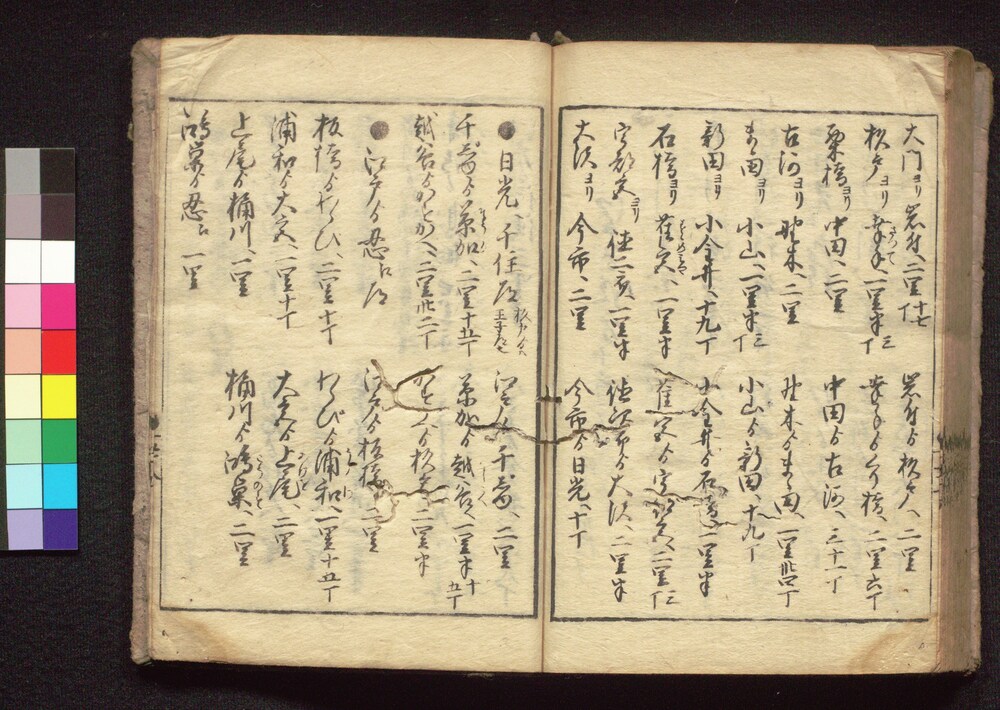 大門ヨリ 岩付へ二里十七丁 岩付ゟ 杦戸へ 二里
杦戸ヨリ 幸手へ一里半三丁 幸手ゟ くり橋へ 二里六丁
栗橋ヨリ 中田へ 二里 中田ゟ 古河へ 三十一丁
古河ヨリ 野木へ 二里 野木ゟ まゝ田へ 一里廿四丁
まゝ田ヨリ 小山へ 一里半三丁 小山ゟ 新田へ 十九丁
新田ヨリ 小金井へ 十九丁 小金井ゟ 石橋へ 一里半
石橋ヨリ 雀宮へ 一里半 雀宮ゟ 宇都宮へ 二里三丁
宇都宮ヨリ 徳二郎へ 一里半 徳次郎ゟ 大沢へ 二里半
大沢ヨリ 今市へ 二里 今市ゟ 日光へ 十丁
●日光へ 千住道 江戸ゟ 千寿へ 二里
千寿ゟ 草加へ 二里十五丁 草加ゟ 越谷へ 一里半十五丁
越谷ゟ かすかへ 二里廿二丁 かすかへゟ 杦戸へ 二里半
●江戸ゟ 忍占道 江戸ゟ 板橋へ 二里
板橋ゟ わらひへ 二里十丁 わらびゟ 浦和へ 一里十五丁
浦和ゟ 大宮へ 一里十丁 大宮ゟ 上尾へ 二里
上尾ゟ 桶川へ 一里 桶川ゟ 鴻巣へ 二里
鴻巣ゟ 忍占 一里